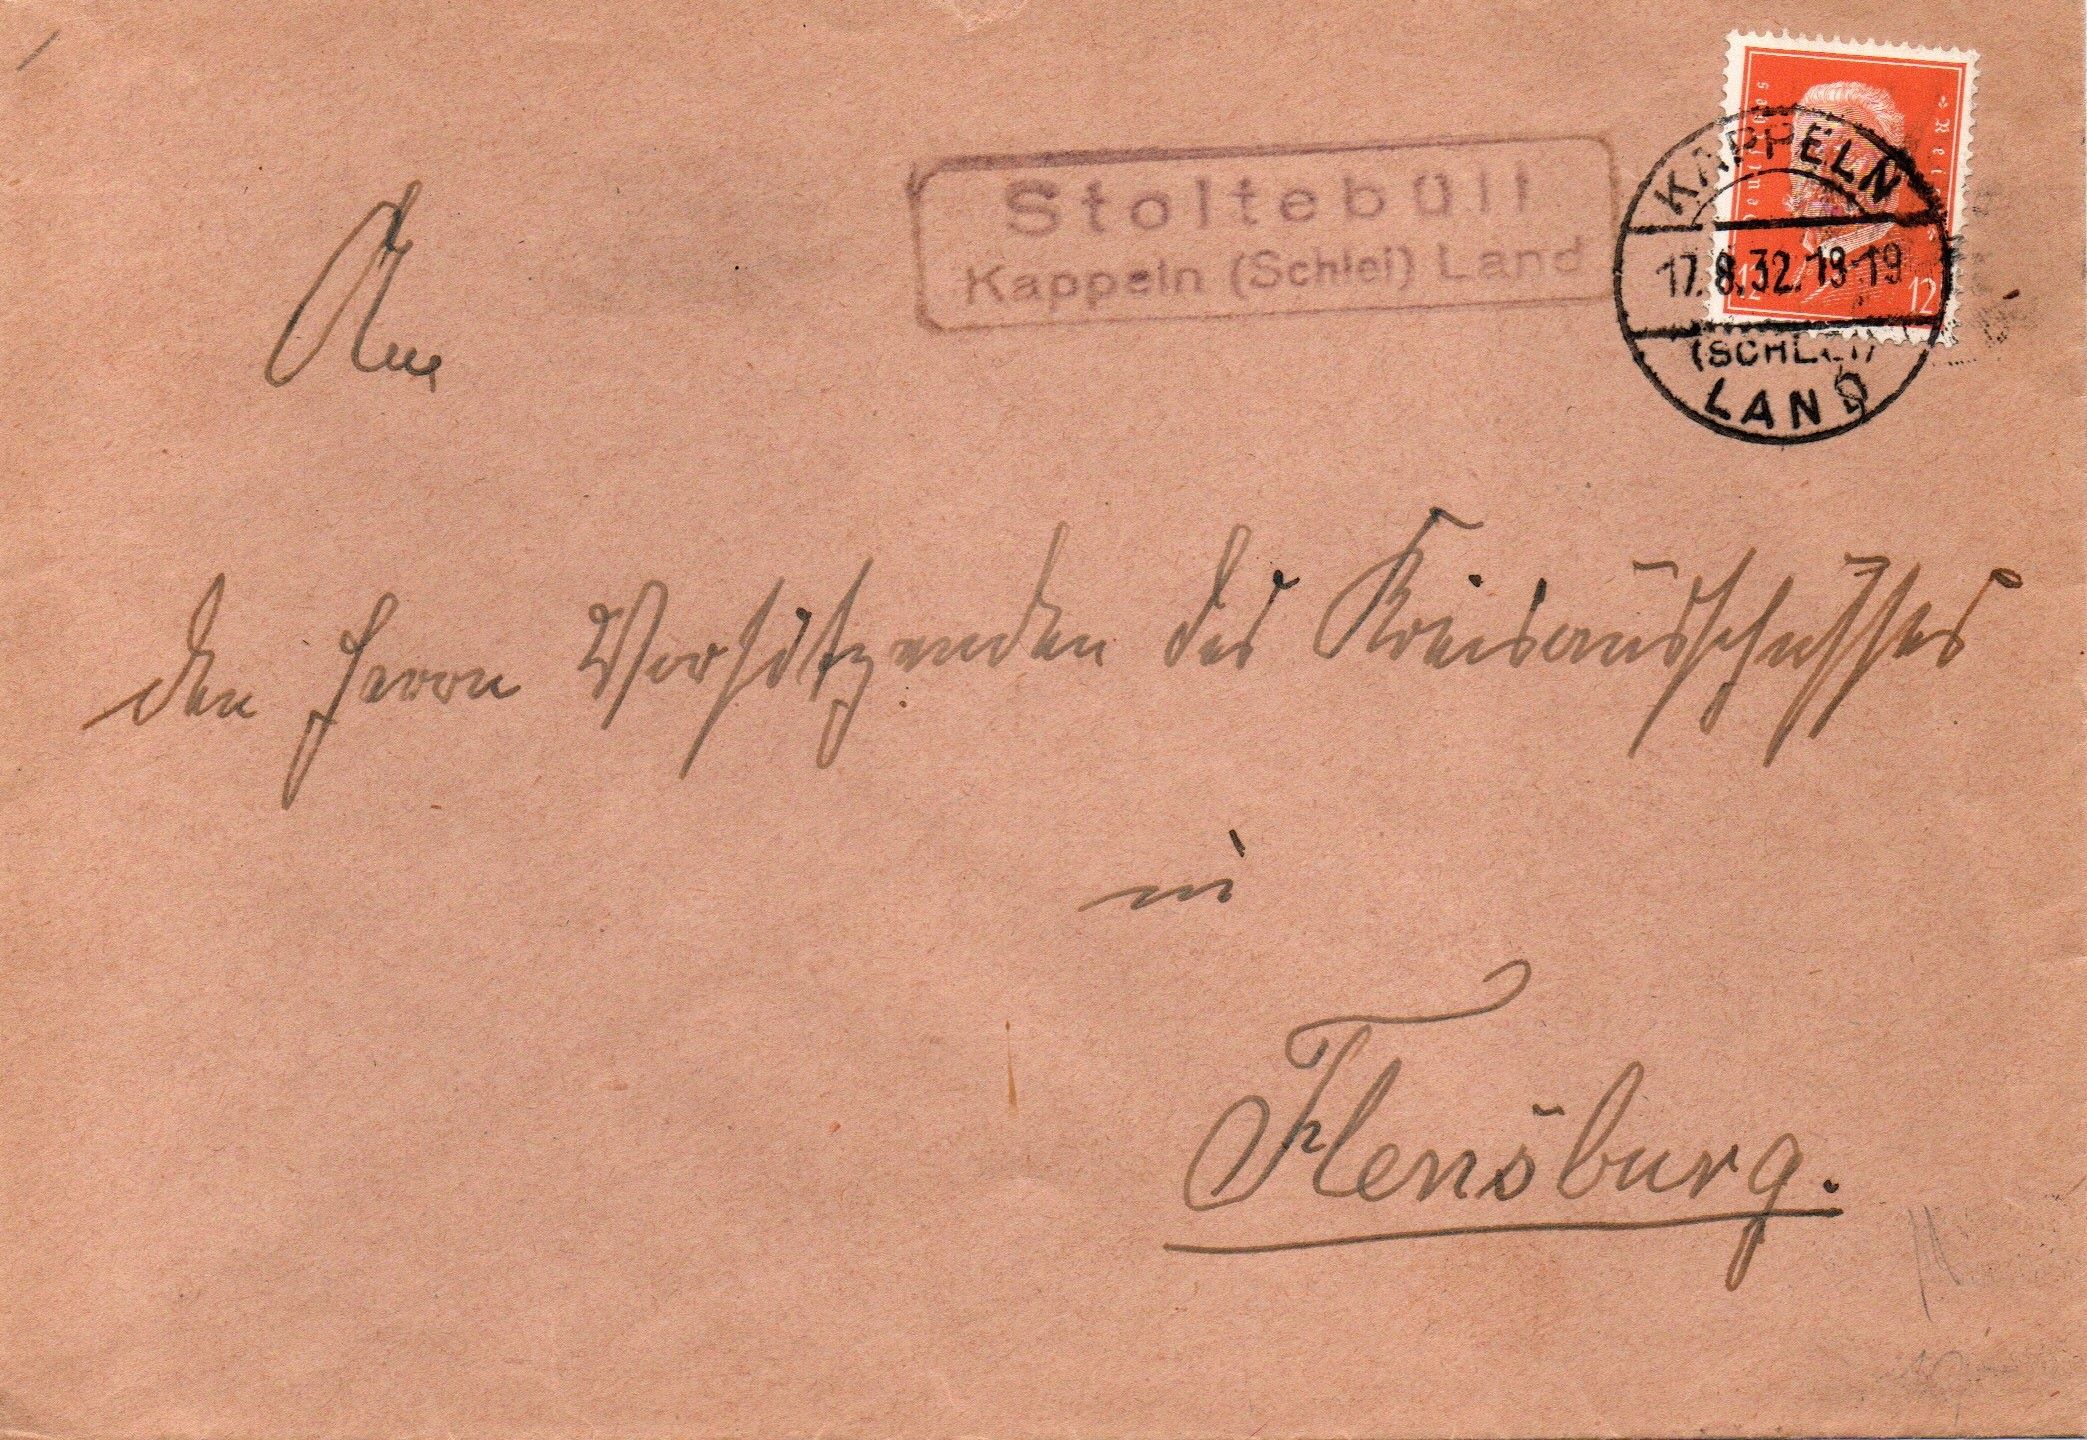 Stoltebüll
Kappeln (Schlei) Land
KAPPELN
17.8.32.18-19
(SCHLEI)
LAND
12 12
An
den Herrn Vorsitzenden des Kreisausschusses
in
Flensburg.